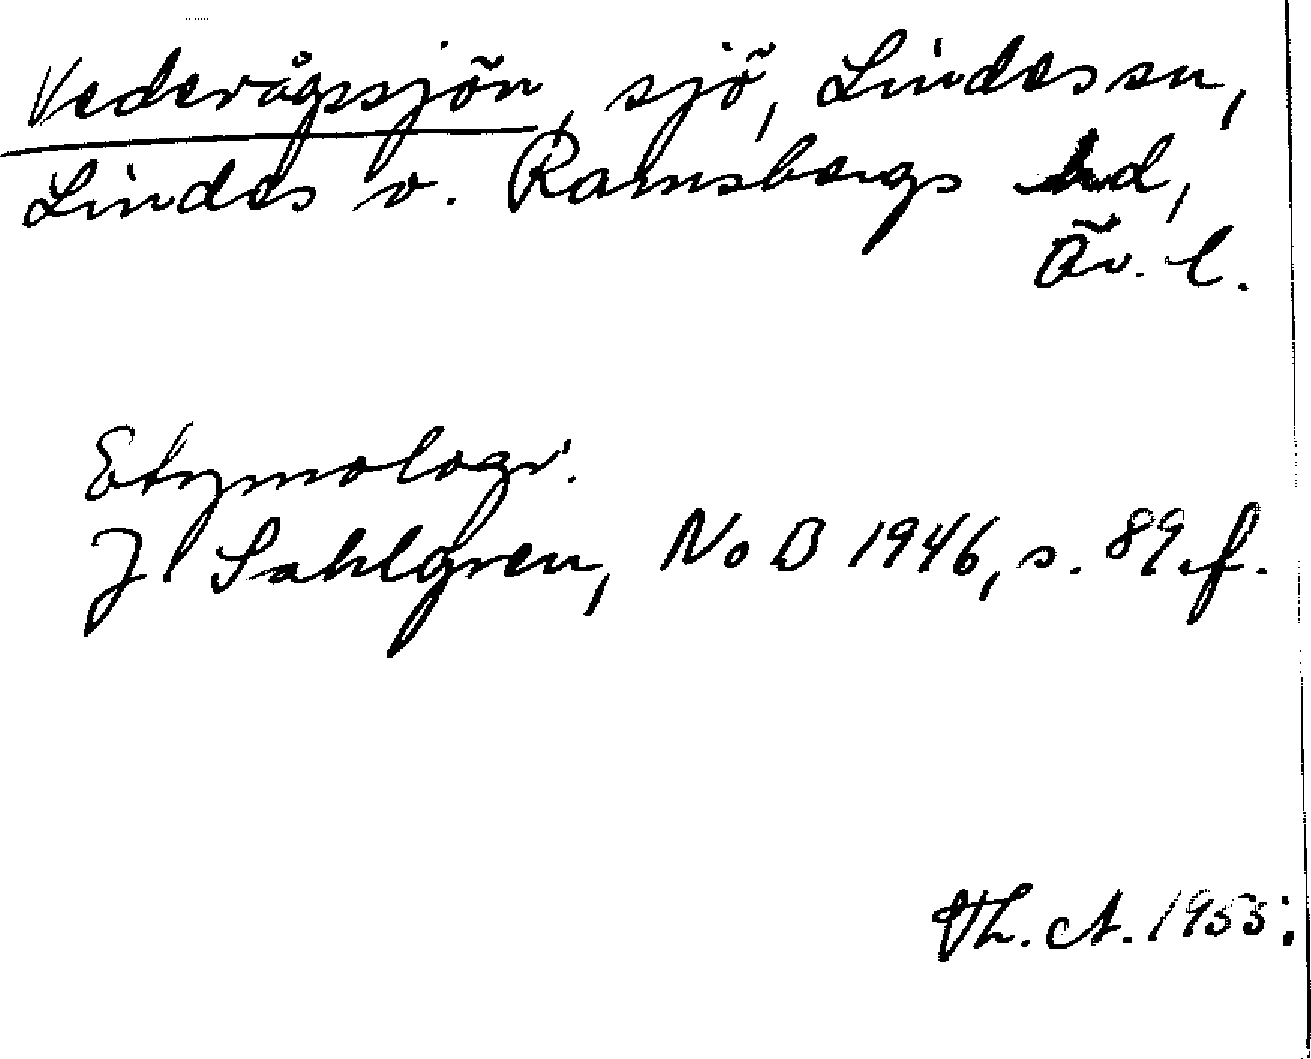 Vedevågssjön, sjö, Lindes sn,
Lindes o. Ramsbergs hd,
Öv. l.
Etymologi.
J. Sahlgren, NoB 1946, s. 89 f.
Th. A. 1955.